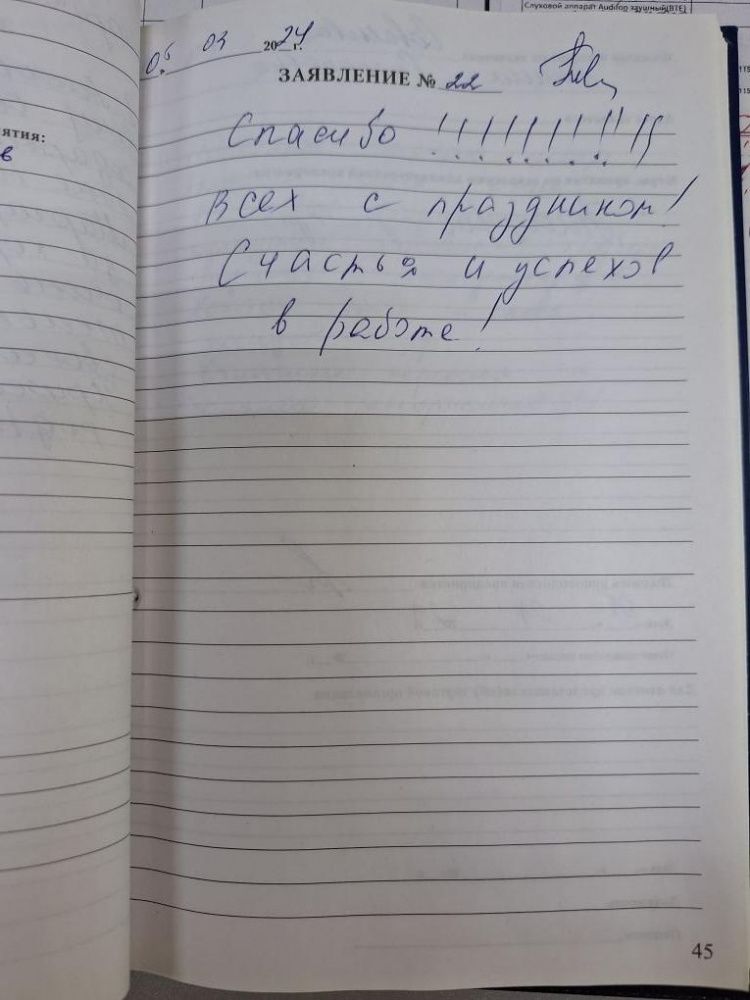 Слуховой аппарат Audifon заушный(BTE)
06 03 2024 г.
ЗАЯВЛЕНИЕ № 22
ятия:
в
Спасибо !!!!!!!!!!!
Всех с праздником!
Счастья и успехов
в работе!
45